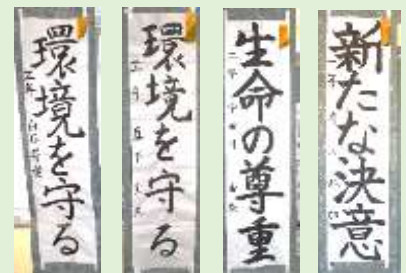 環境を守る
環境を守る
生命の尊重
新たな決意